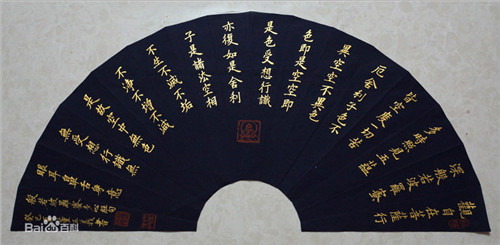 觀自在菩薩行
深般若波羅蜜
多時照見五蘊
皆空度一切苦
厄舍利子色不
異空空不異色
色即是空空即
是色受想行識
亦復如是舍利
子是諸法空相
不生不滅不垢
不淨不增不減
是故空中無色
無受想行識無
眼耳鼻舌身意
般若波羅蜜多心經句
癸巳 書
Bai百科